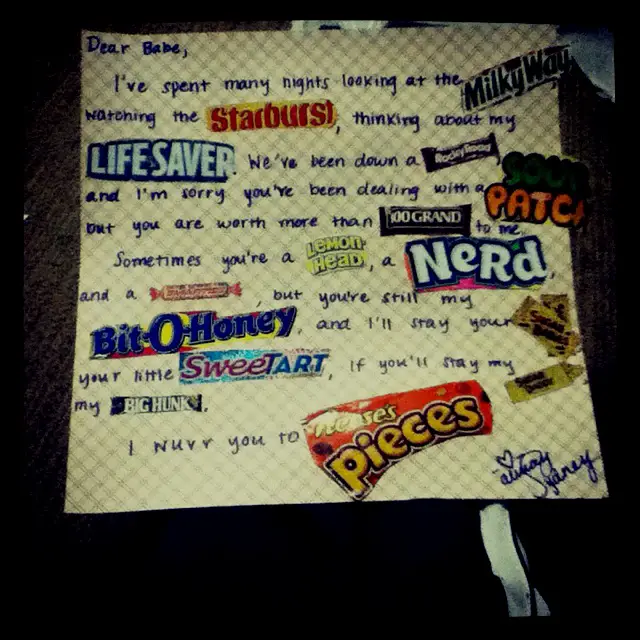 Dear Babe,
I've spent many nights looking at the Milky Way,
watching the Starburst, thinking about my
LIFESAVER. We've been down a Rocky Road
and I'm sorry you've been dealing with a SOUR PATCH
but you are worth more than 100 GRAND to me.
Sometimes you're a LEMON HEAD, a NeRd,
and a , but you're still my
Bit-O-Honey, and I'll stay your
your little SweeTART, if you'll stay my
my BIG HUNK.
I Nurr you to reeses pieces